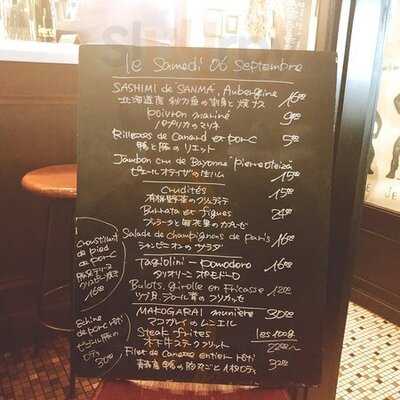 le Samedi 06 Septembre
SASHIMI de SANMA, Aubergine
北海道産 秋刀魚の刺身と焼ナス 16.00
poivron mariné
パプリカのマリネ 9.00
Rillettes de Canard et porc
鴨と豚のリエット 5.00
Jambon cru de Bayonne "Pierre Oteiza"
ピエール オテイザの生ハム 15.00
Crudités
有機野菜のクリュディテ 15.00
Burrata et figues
ブッラータと無花果のカプレーゼ 24.00
Salade de champignons de paris
シャンピニオンのサラダ 16.00
Tagliolini - pomodoro
タリオリーニ ポモドーロ 16.00
Bulots, girolle en fricasse
ツブ貝、ジロール茸のフリカッセ
MAKOGARAI munière
マコガレイのムニエル 30.00
Steak-frites les 100g
牛ステークフリット
Filet de Canette entier rôti
鴨の胸丸ごと1枚ロティ
Croustillant
de pied
de porc
豚足テリーヌ
クリスピー焼き
16.00
Echine
de porc rôti
ロティ
30.00